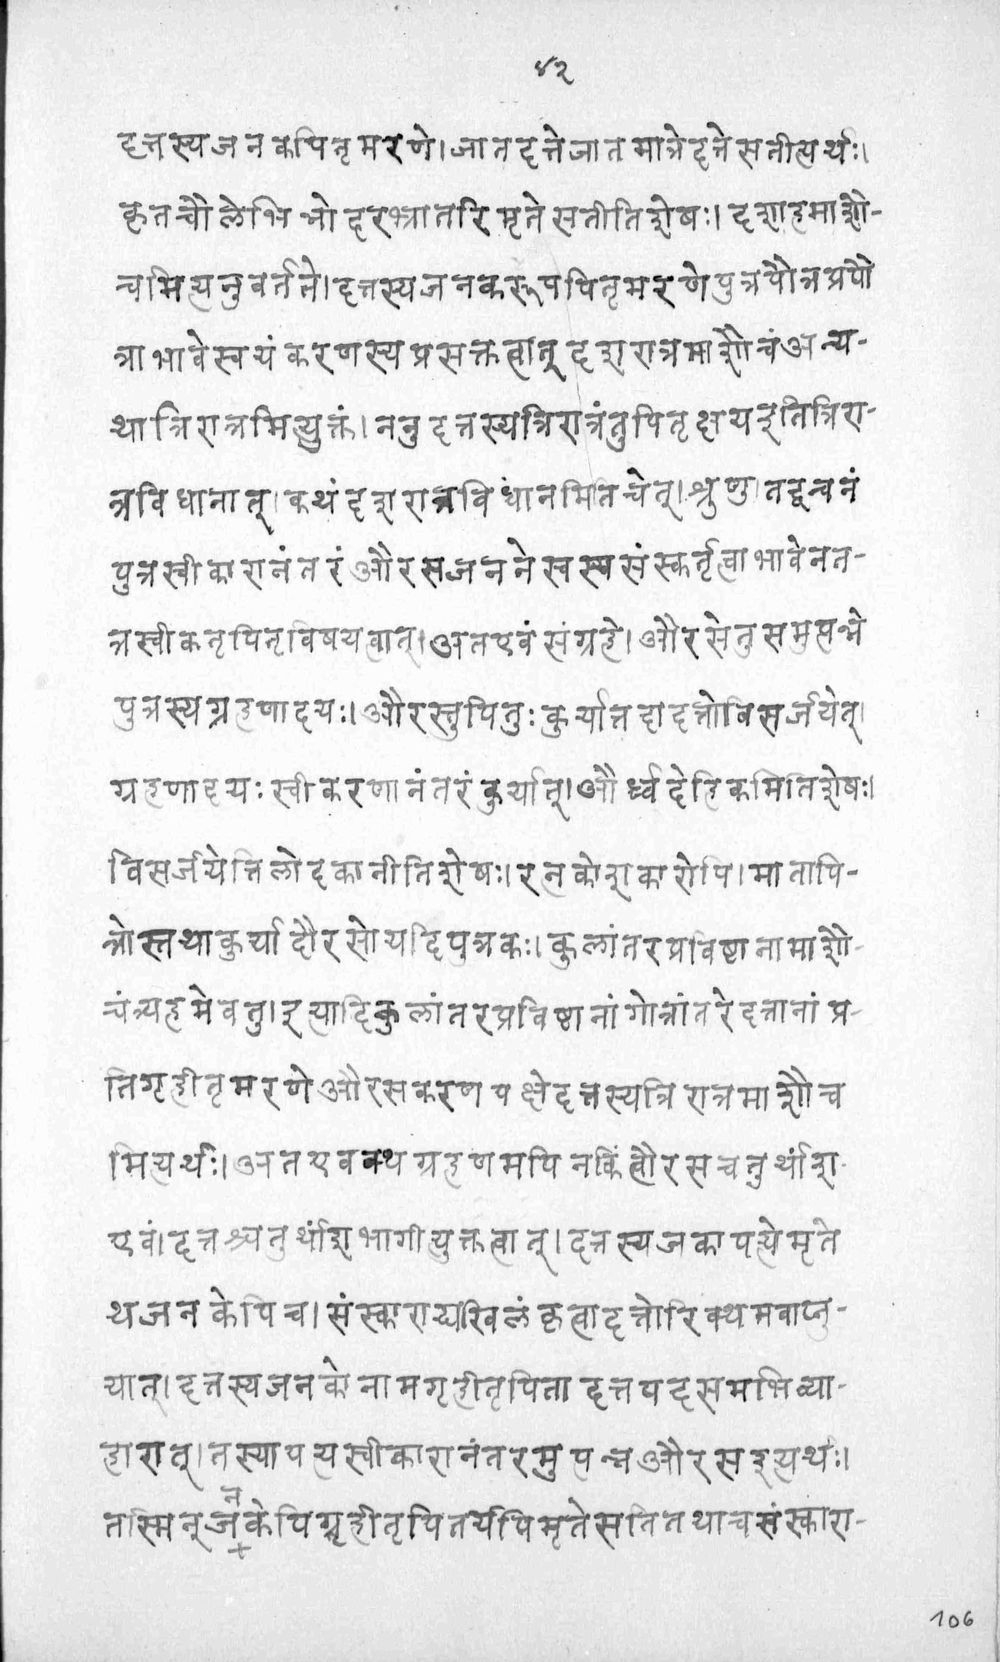 ४२
दत्तस्यजनकपितृमरणे।जातदत्तेजातमात्रेदत्तेसतीत्यर्थः।
कृतचौलेभिन्नोदरभ्रातरिमृतेसतीतिशेषः। दशाहमाशौ-
चमित्यनुवर्तते।दत्तस्यजनकरूपपितृमरणेपुत्रपौत्रप्रपौ
त्राभावेस्वयंकरणस्यप्रसक्तत्वात् दशरात्रमाशौचंअन्य-
थात्रिरात्रमित्युक्तं। ननुदत्तस्यत्रिरात्रंतुपितृक्षयइतित्रिरा-
त्रविधानात्। कथंदशरात्रविधानमितिचेत्।श्रुणु।तद्वचनं
पुत्रस्वीकारानंतरंऔरसजननेस्वस्यसंस्कर्तृत्वाभावेनत-
त्रस्वीकतृपितृविषयत्वात्।अतएवंसंग्रहे।औरसेतुसमुत्पन्ने
पुत्रस्यग्रहणादयः।औरस्तुपितुःकुर्यात्तदादत्तोविसर्जयेत्।
ग्रहणादयः स्वीकरणानंतरंकुर्यात्।और्ध्वदेहिकमितिशेषः।
विसर्जयेत्तिलोदकानीतिशेषः।रत्नकोशकारोपि।मातापि-
त्रोस्तथाकुर्यादौरसोयदिपुत्रकः। कुलांतरप्रविष्टानामाशौ-
चंत्र्यहमेवतु।इत्यादिकुलांतरप्रविष्टानांगोत्रांतरेदत्तानांप्र-
तिगृहीतृमरणेऔरसकरणपक्षेदत्तस्यत्रिरात्रमाशौच
मित्यर्थः।अतएवक्थग्रहणमपिनकिंत्वौरसचतुर्थांश
एवं।दत्तश्चतुर्थांशभागीत्युक्तत्वात्।दत्तस्यजकापत्येमृते
थजनकेपिच।संस्काराद्यखिलंकृत्वादत्तोरिक्थमवाप्नु-
यात्।दत्तस्यजनकोनामगृहीतृपितादत्तपदसमभिव्या-
हारात्।तस्यापत्यस्वीकारानंतरमुत्पन्नऔरसइत्यर्थः।
तस्मिन्जनकेपिगृहीतृपितर्यपिमृतेसतितथाचसंस्कारा-
106